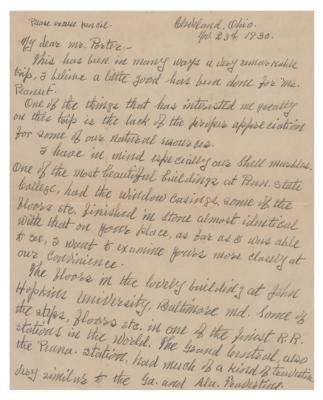 Please excuse pencil.
Cleveland, Ohio.
Nov. 23rd 1930.
My dear Mr. Porter:-
This has been in many ways a very remarkable
trip, I believe a little good has been done for "Mr.
Peanut.
One of the things that has interested me greatly
on this trip is the lack of the proper appreciation
for some of our natural resources.
I have in mind especially our Shell marbles.
One of the most beautiful buildings at Penn. State
College, had the window casings, some of the
floors etc. finished in stone almost identical
with that on your place, as far as I was able
to see, I want to examine yours more closely at
our convenience.
The floors in the lovely building at John
Hopkins University, Baltimore Md. Some of
the steps, floors etc. in one of the finest R.R.
stations in the World. The Grand Central, also
the Penna. Station, had much of a kind of travertine
very similar to the Ga. and Ala. Travertine.